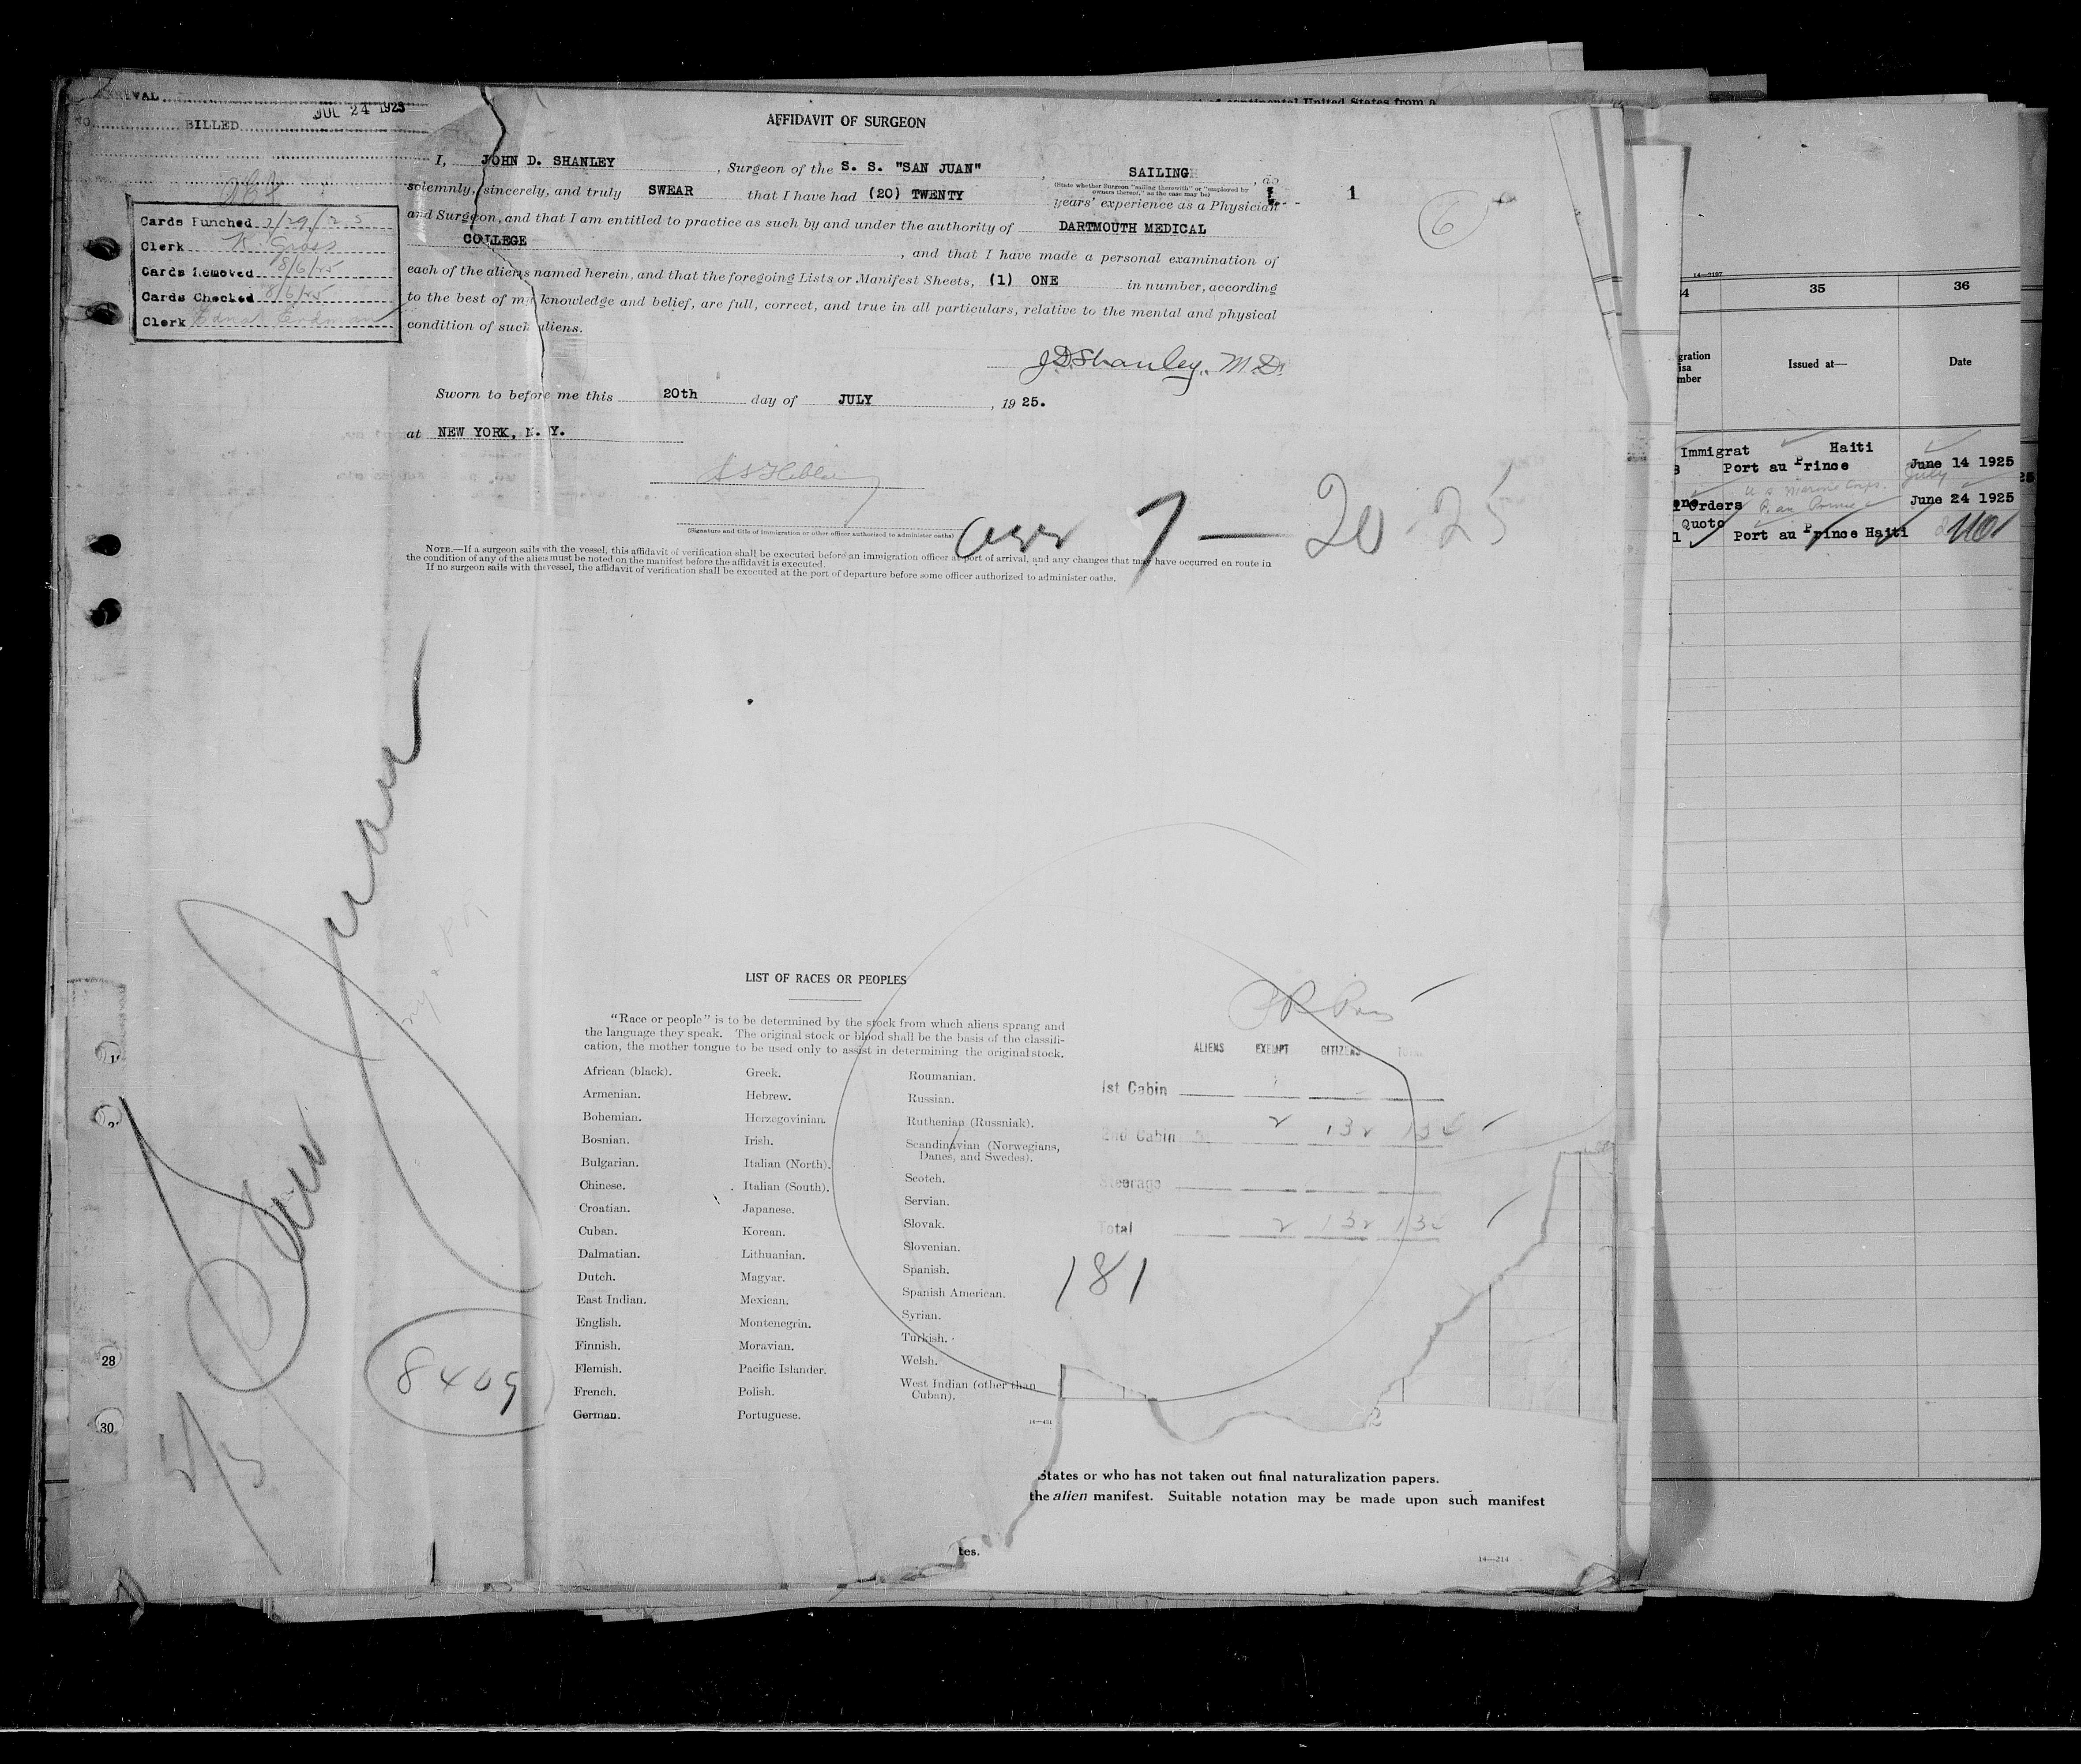 ARRIVAL
NO. BILLED JUL 24 1925
Cards Punched 7/29/25
Clerk K. Gross
Cards Removed 8/6/25
Cards Checked 8/6/25
Clerk Edna Erdman
of continental United States from a
AFFIDAVIT OF SURGEON
I, JOHN D. SHANLEY, Surgeon of the S. S. "SAN JUAN", SAILING, do
(State whether Surgeon "sailing therewith" or "employed by owners thereof," as the case may be)
solemnly, sincerely, and truly SWEAR that I have had (20) TWENTY years' experience as a Physician
and Surgeon, and that I am entitled to practice as such by and under the authority of DARTMOUTH MEDICAL
COLLEGE, and that I have made a personal examination of
each of the aliens named herein, and that the foregoing Lists or Manifest Sheets, (1) ONE in number, according
to the best of my knowledge and belief, are full, correct, and true in all particulars, relative to the mental and physical
condition of such aliens.
J.D. Shanley, M.D.
Sworn to before me this 20th day of JULY, 1925.
at NEW YORK, N. Y.
(Signature and title of immigration or other officer authorized to administer oaths)
NOTE.—If a surgeon sails with the vessel, this affidavit of verification shall be executed before an immigration officer at port of arrival, and any changes that may have occurred en route in
the condition of any of the aliens must be noted on the manifest before the affidavit is executed.
If no surgeon sails with the vessel, the affidavit of verification shall be executed at the port of departure before some officer authorized to administer oaths.
1
6
arr 7—20-25
San Juan
8409
LIST OF RACES OR PEOPLES
"Race or people" is to be determined by the stock from which aliens sprang and
the language they speak. The original stock or blood shall be the basis of the classifi-
cation, the mother tongue to be used only to assist in determining the original stock.
African (black).
Armenian.
Bohemian.
Bosnian.
Bulgarian.
Chinese.
Croatian.
Cuban.
Dalmatian.
Dutch.
East Indian.
English.
Finnish.
Flemish.
French.
German.
Greek.
Hebrew.
Herzegovinian.
Irish.
Italian (North).
Italian (South).
Japanese.
Korean.
Lithuanian.
Magyar.
Mexican.
Montenegrin.
Moravian.
Pacific Islander.
Polish.
Portuguese.
Roumanian.
Russian.
Ruthenian (Russniak).
Scandinavian (Norwegians,
Danes, and Swedes).
Scotch.
Servian.
Slovak.
Slovenian.
Spanish.
Spanish American.
Syrian.
Turkish.
Welsh.
West Indian (other than
Cuban).
ALIENS EXEMPT CITIZENS TOTAL
1st Cabin
2nd Cabin 2 132 134
Steerage
Total 2 132 134
181
28
30
States or who has not taken out final naturalization papers.
the alien manifest. Suitable notation may be made upon such manifest
tes.
14—214
14—2197
34 35 36
Issued at—
Date
Immigrat Haiti
Port au Prince June 14 1925
July
U S Marine Corps.
Orders P. au Prince June 24 1925
Quoto
Port au Prince Haiti